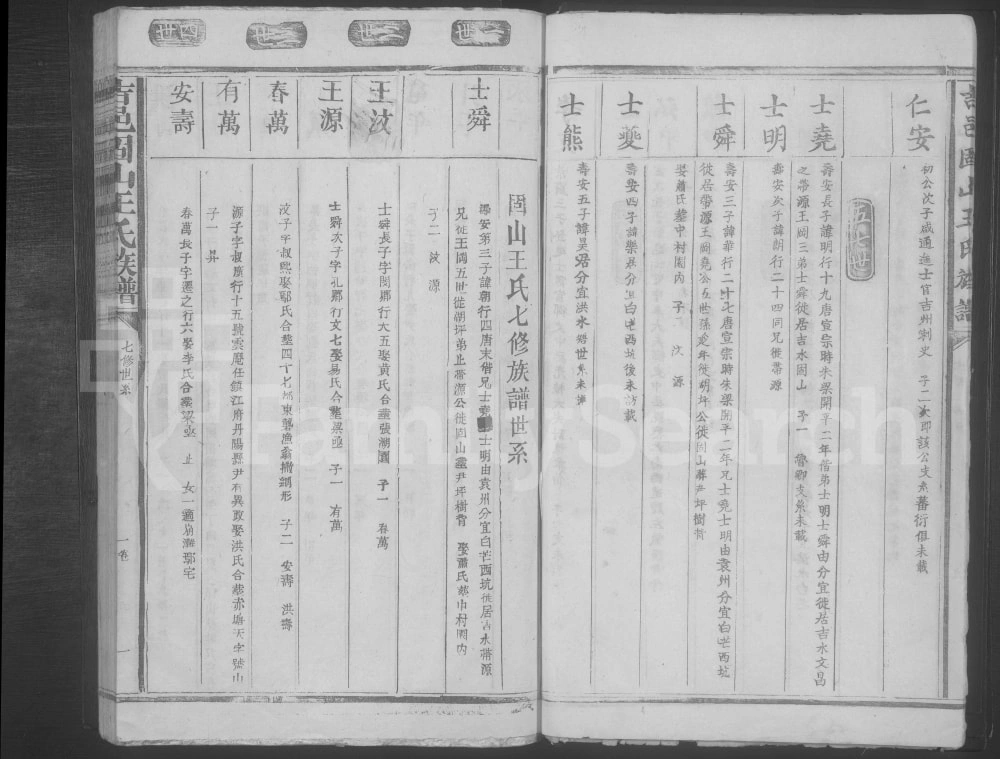 吉邑固山王氏族譜
仁安
初公次子咸通進士官吉州刺史 子二次郎該公支系蕃衍俱未載
五七世
士堯
壽安長子諱明行十九唐宣宗時朱梁開平二年偕弟士明士舜由分宜徙居吉水文昌
之帶源王岡三弟士舜徙居吉水固山 子一 魯卿支系未載
士明
壽安次子諱朗行二十四同兄徙帶源
士舜
壽安三子諱華行二十七唐宣宗時朱梁開平二年兄士堯士明由袁州分宜白芒西坑
徙居帶源王岡堯公五世孫定年徙明坪公徙固山葬尹坪樹背
娶蕭氏葬中村園內 子 汶 源
士夔
壽安四子諱樂居分宜白芒西坑後未訪載
士熊
壽安五子諱昊居分宜洪水 世系未詳
固山王氏七修族譜世系
一世
二世
三世
四世
士舜
壽安第三子諱朝行四唐末偕兄士堯士明由袁州分宜白芒西坑徙居吉水帶源
兄從王岡五世從湖坪弟止帶源公徙固山葬尹坪樹背 娶蕭氏葬巾村園內
子二 汶 源
王汶
士舜長子字閔鄉行大五娶黃氏合葬張湖園 子一 春萬
王源
士舜次子字孔鄉行文七娶易氏合葬 子一 有萬
春萬
汶子字叔熙娶鄢氏合葬四十七都東 漁翁撒網形 子二 安壽 洪壽
有萬
源子字叔 行十五號雲 任鎮江府丹陽縣尹有異政娶洪氏合葬赤塘天字號山
子一 昇
安壽
春萬長子字遷之行六娶李氏合葬 止 女一適 灘 宅
吉邑固山王氏族譜
七修世系
一卷
一
FamilySearch